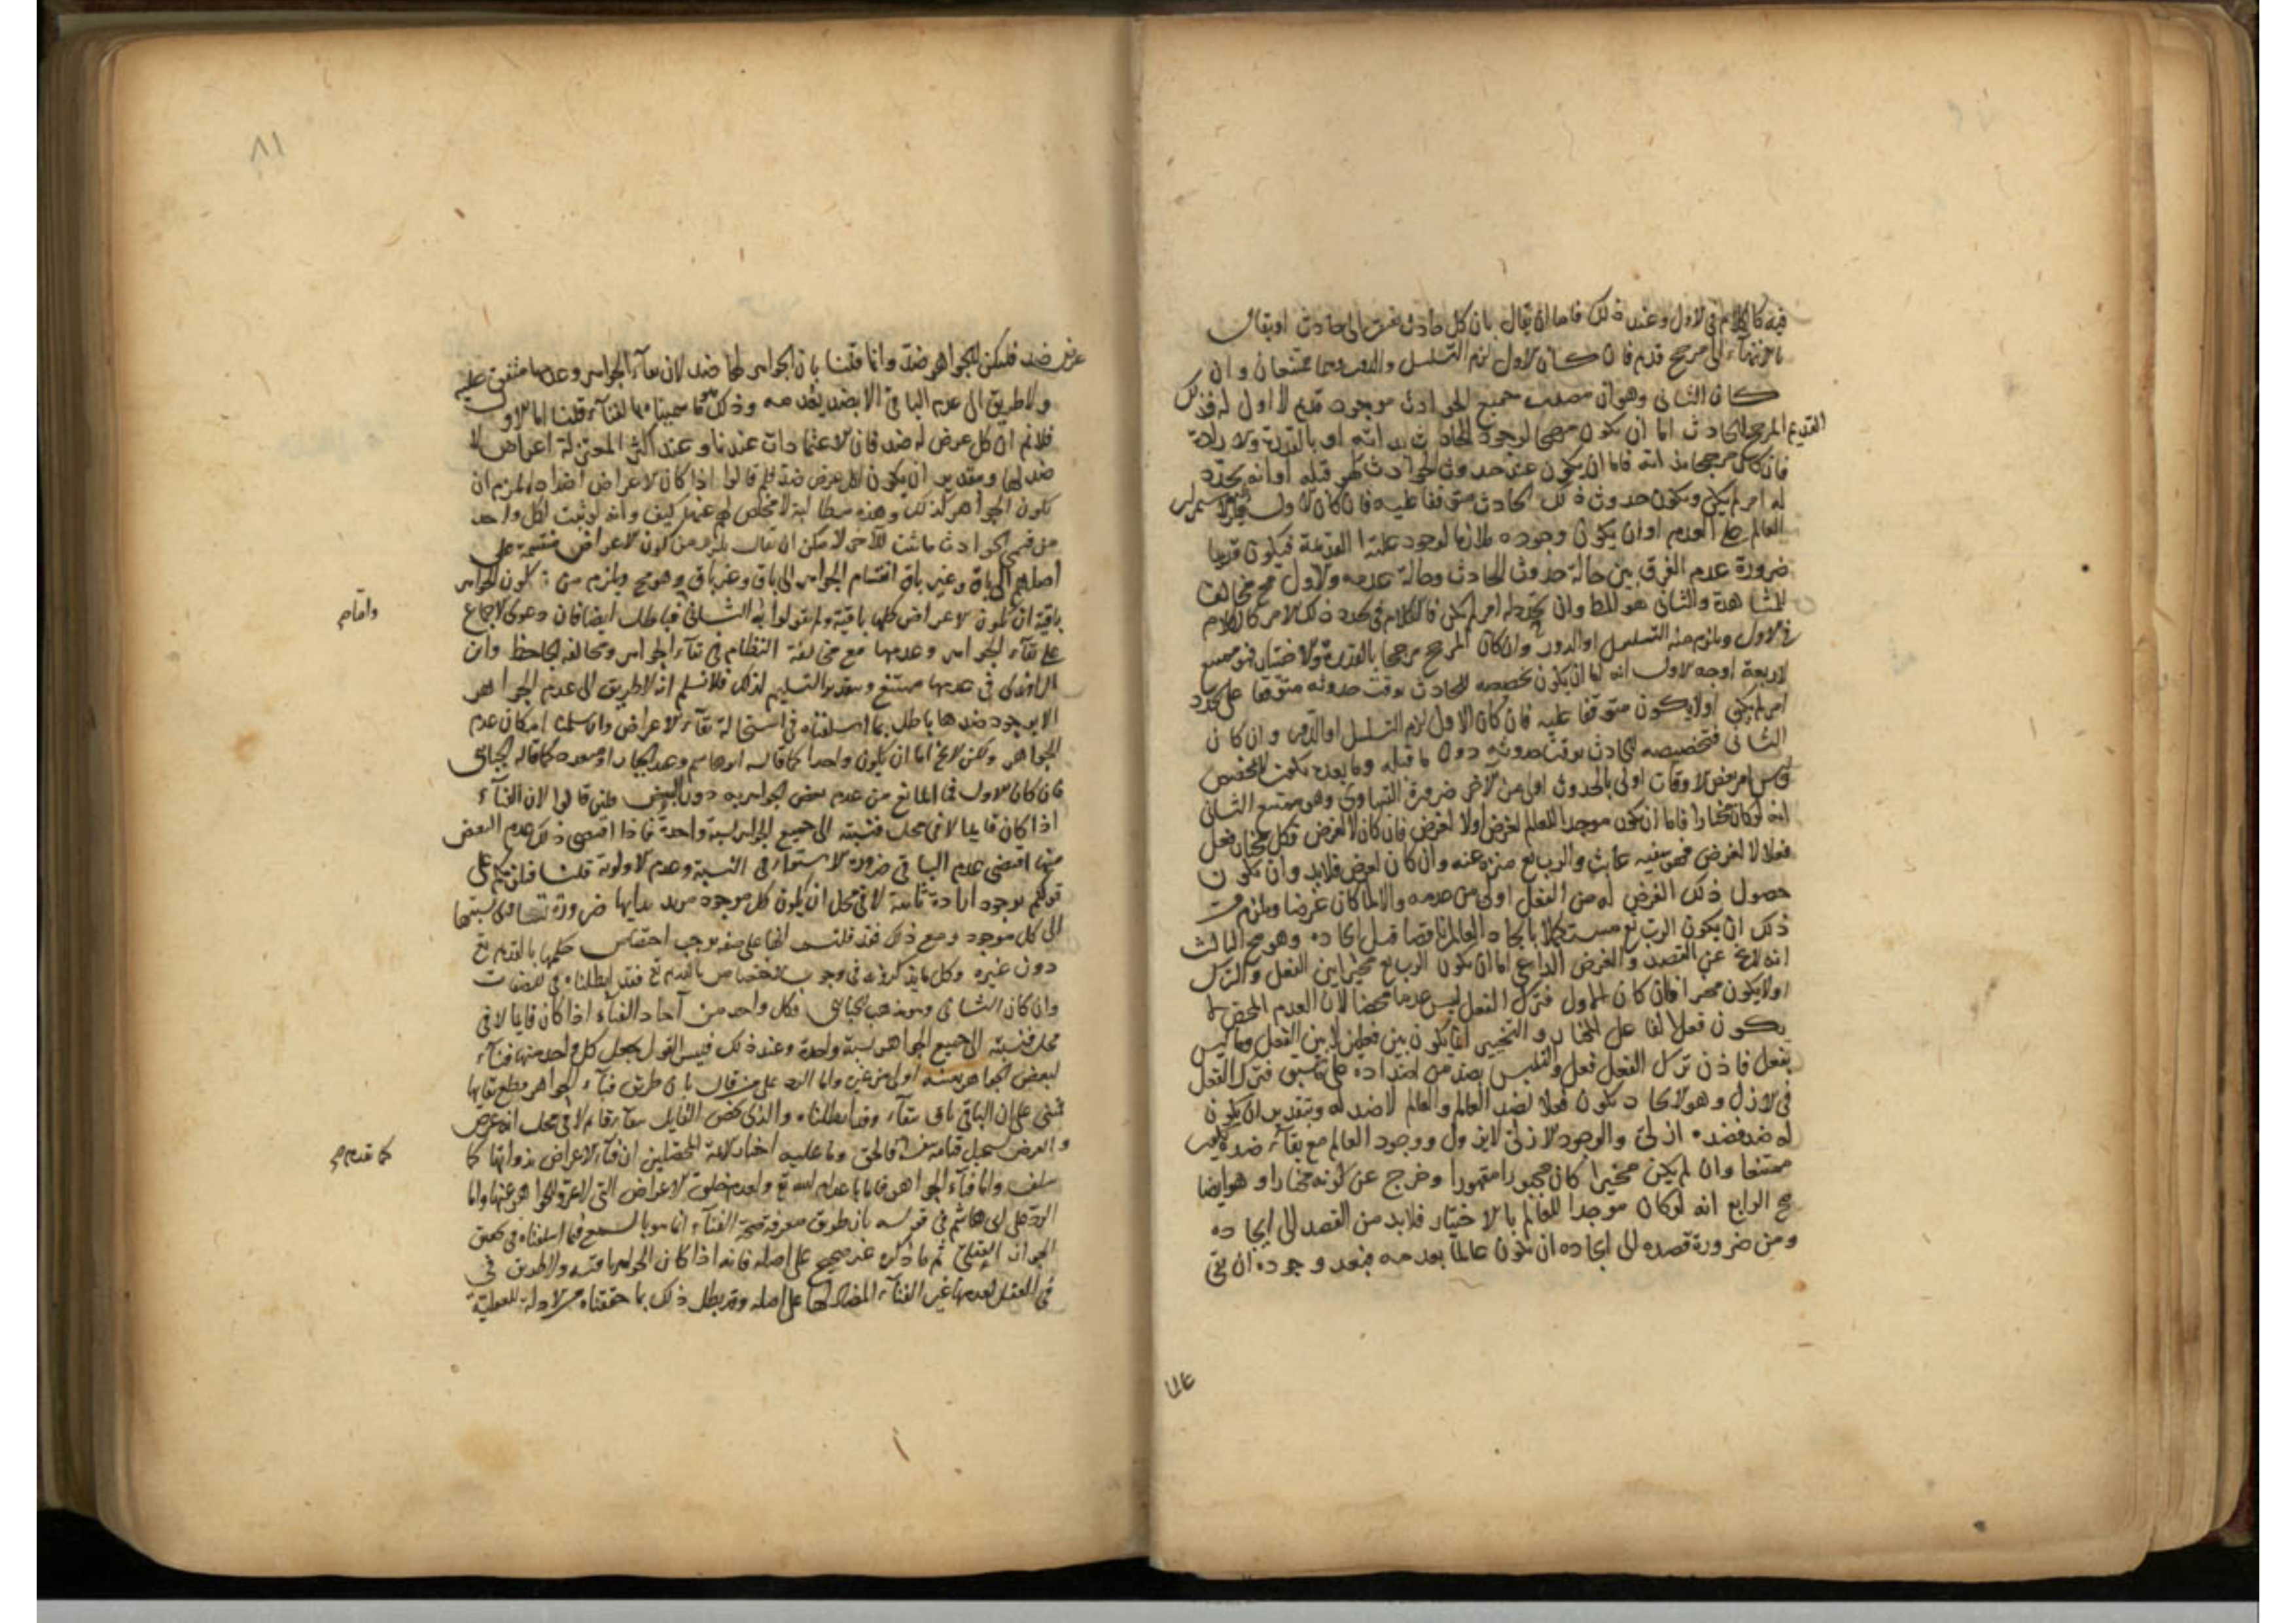 فيه كالكلام في الاول وعند ذلك فاما ان يقال بان كل حادث يفتقر الى حادث او يقال
بانتهاء الى مرجح قديم فان كان الاول لزم التسلسل والدور وهما ممتنعان وان
كان الثاني وهو ان مصدر جميع الحوادث موجود قديم لا اول له فذلك
القديم المرجح للحادث اما ان يكون مرجحا لوجود الحادث بذاته او بالقدرة والارادة
فان كان مرجحا بذاته فاما ان يكون عند حدوث الحوادث كهو قبله او انه تجدد
له امر لم يكن ويكون حدوث ذلك الحادث متوقفا عليه فان كان الاول
العالم على العدم او ان يكون وجوده ملازما لوجود علته القديمة فيكون قديما
ضرورة عدم الفرق بين حالة حدوث الحادث وحالة عدمه والاول مح مخالف
للمشاهدة والثاني هو المط وان تجدد له امر لم يكن فالكلام في تجدد ذلك الامر كالكلام
في الاول ويلزم منه التسلسل او الدور وان كان المرجح مرجحا بالقدرة والاختيار فهو ممتنع
لاربعة اوجه الاول انه اما ان يكون تخصيصه للحادث بوقت حدوثه متوقفا على تجدد
امر لم يكن او لا يكون متوقفا عليه فان كان الاول لزم التسلسل او الدور وان كان
الثاني فتخصيصه للحادث بوقت حدوثه دون ما قبله وما بعده
بعض الاوقات اولى بالحدوث من الآخر ضرورة التساوي وهو ممتنع الثاني
انه لو كان مختارا فاما ان يكون موجدا للعالم لغرض او لا لغرض فان كان لا لغرض فكل مختار فعل
فعلا لا لغرض فهو سفيه عابث والرب تع منزه عنه وان كان لغرض فلا بد وان يكون
حصول ذلك الغرض له من الفعل اولى من عدمه والا لما كان غرضا ويلزم من
ذلك ان يكون الرب تع مستكملا بايجاد العالم ناقصا قبل ايجاده وهو مح الثالث
انه لا يخ عن القصد والغرض الداعي اما ان يكون الرب تع مخيرا بين الفعل والترك
او لا يكون مخيرا فان كان الاول فترك الفعل ليس عدما محضا لان العدم المحض لا
يكون فعلا لفاعل المختار والتخيير انما يكون بين فعلين لا بين الفعل وما ليس
بفعل فاذن ترك الفعل فعل والتلبس بضد من اضداده على ما سبق فترك الفعل
في الازل وهو الايجاد يكون فعلا لضد العالم والعالم لا ضد له وبتقدير ان يكون
له ضد فضده ازلي والوجود الازلي لا يزول ووجود العالم مع بقاء ضده يكون
ممتنعا وان لم يكن مخيرا كان مجبورا مقهورا وخرج عن كونه مختارا وهو ايضا
مح الرابع انه لو كان موجدا للعالم بالاختيار فلا بد من القصد الى ايجاده
ومن ضرورة قصده الى ايجاده ان يكون عالما بعدمه فبعد وجوده ان بقي
عالما
٨١
عرض ضد فليكن للجواهر ضد وانما قلنا بان الجواهر لها ضد لان بقاء الجواهر وعدمها متفق عليه
ولا طريق الى عدم الباقي الا بضد يعدمه وذلك هو ما سميناه بالفناء قلنا اما الاول
فلا نم ان كل عرض له ضد فان الاعتمادات عندنا وعند اكثر المعتزلة اعراض لا
ضد لها وبتقدير ان يكون لكل عرض ضد فلم قالوا اذا كان الاعراض اضداد يلزم ان
يكون الجواهر كذلك وهذه مطالبة لا مخلص لهم عنها كيف وانه لو ثبت لكل واحد
من قسمي الحوادث ما ثبت للآخر لامكن ان يقال يلزم من كون الاعراض منقسمة على
اصلهم الى باق وغير باق انقسام الجواهر الى باق وغير باق وهو مح ويلزم من كون الجواهر
باقية ان تكون الاعراض كلها باقية ولم يقولوا به الثاني فباطل ايضا فان دعوى الاجماع
واما م
على بقاء الجواهر وعدمها مع مخالفة النظام في بقاء الجواهر ومخالفة الجاحظ وابن
الراوندي في عدمها ممتنع وبتقدير التسليم لذلك فلا نسلم انه لا طريق الى عدم الجواهر
الا بوجود ضدها باطل بما اسلفناه في استحالة بقاء الاعراض وان سلمنا امكان عدم
الجواهر ولكن لا يخ اما ان يكون واحدا كما قاله ابو هاشم وعبد الجبار او متعدد كما قاله الجبائي
فان كان الاول فما المانع من عدم بعض الجواهر به دون البعض فلئن قالوا لان الفناء
اذا كان قايما لا في محل فنسبته الى جميع الجواهر نسبة واحدة فاذا اقتضى ذلك عدم البعض
منها اقتضى عدم الباقي ضرورة الاستواء في النسبة وعدم الاولوية قلنا فيلزمكم على
قولكم بوجود ارادة ثابتة لا في محل ان يكون كل موجود مريد بها ضرورة تساوي نسبتها
الى كل موجود ومع ذلك فقد قلتم انها على صفة توجب اختصاص حكمها بالقديم تع
دون غيره وكل ما يذكرونه في وجوب الاختصاص بالقديم تع فقد ابطلناه في الصفات
وان كان الثاني وهو مذهب الجبائي فكل واحد من آحاد الفناء اذا كان قايما لا في
محل فنسبته الى جميع الجواهر نسبة واحدة وعند ذلك فليس القول بجعل كل واحد منها فناء
لبعض الجواهر بعينه اولى من غيره واما الرد على من قال بان طريق فناء الجواهر بقطع بقايها
فمبني على ان الباقي باق ببقاء وقد ابطلناه والذي يخص القايل ببقاء قايم لا في محل انه عرض
والعرض يستحيل قيامه بنفسه فالحق وما عليه اختيار الائمة المحصلين ان فناء الاعراض بذواتها كما
كما تقدم م
سلف واما فناء الجواهر فاما باعدام الله تع ولعدم خلق الاعراض التي لا تعرو الجواهر عنها واما
الرد على ابي هاشم في قوله بان طريق معرفة صحة الفناء انما هو بالسمع فما اسلفناه في تحقيق
الجواز العقلي ثم ما ذكره غير صحيح على اصله فانه اذا كان الجواهر باقية ولا طريق في
في العقل لعدمها غير الفناء المضاد لها على اصله وقد بطل ذلك بما حققناه من الادلة العقلية